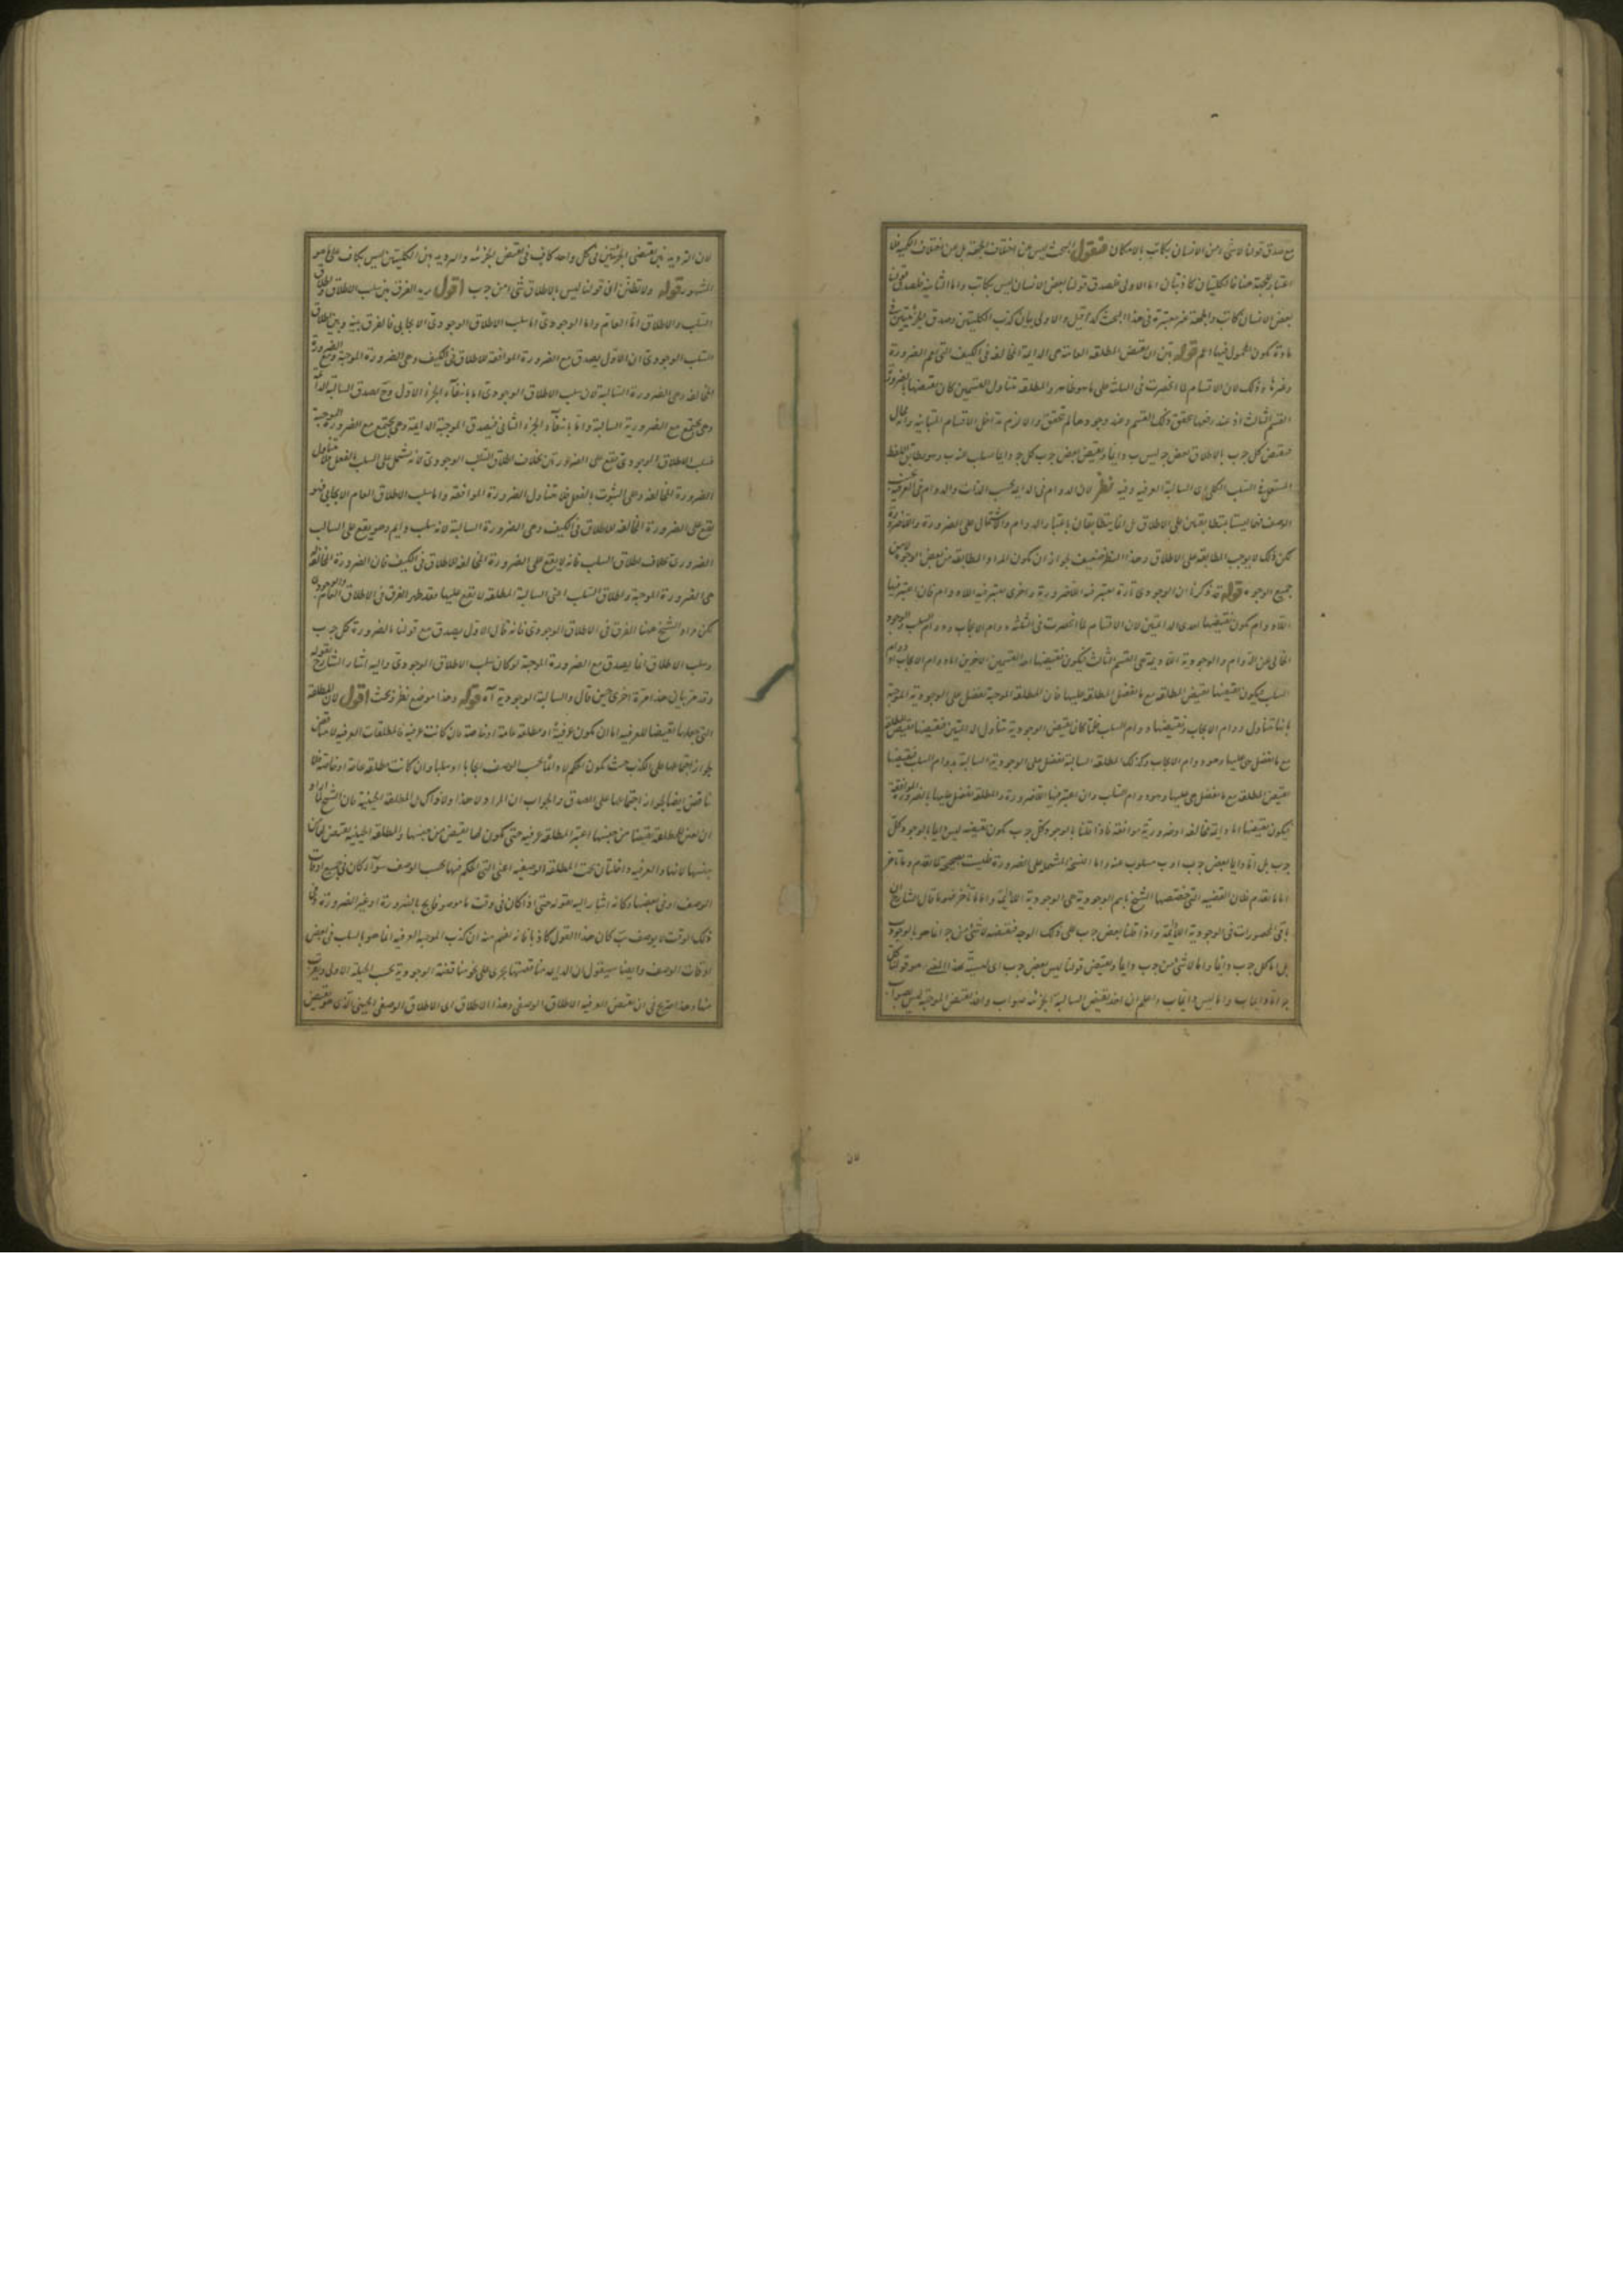 مع صدق قولنا لا شئ من الانسان بكاتب بالامكان فنقول البحث ليس من اختلاف الجهة بل من اختلاف الكمية فلا
اعتبار بجهة هنا فالكليتان كاذبتان اما الاولى فلصدق قولنا بعض الانسان ليس بكاتب واما الثانية فلصدق قولنا
بعض الانسان كاتب والجهة غير معتبرة فى هذا البحث كما قيل والاولى بيان كذب الكليتين وصدق الجزئيتين فى
مادة يكون المحمول فيها اعم قوله بين ان نقيض المطلقة العامة هى الدايمة المخالفة فى الكيف التى تعم الضرورة
وغيرها وذلك لان الاقسام لما انحصرت فى الثلث على ما هو ظاهر والمطلقة تتناول القسمين كان نقيضها بالضرورة
القسم الثالث اذ عند رفعها يتحقق ذلك القسم وعند وجودها لم يتحقق والا لزم تداخل الاقسام المتباينة وانه محال
فنقيض كل ج ب بالاطلاق بعض ج ليس ب دايما ونقيض بعض ج ب كل ج دايما يسلب عنه ب وهو يطابق اللفظ
المستعمل فى السلب الكلى اى السالبة العرفية وفيه نظر لان الدوام فى الدايمة بحسب الذات والدوام فى العرفية بحسب
الوصف فهما ليستا متطابقتين على الاطلاق بل انما يتطابقان باعتبار الدوام والاشتمال على الضرورة واللاضرورة
لكن ذلك لا يوجب المطابقة على الاطلاق وهذا النظر ضعيف لجواز ان يكون المراد المطابقة من بعض الوجوه لا من
جميع الوجوه قوله قد ذكرنا ان الوجودى تارة يعتبر فيه اللاضرورة واخرى يعتبر فيه اللادوام فان اعتبر فيها
اللادوام يكون نقيضها احدى الدايمتين لان الاقسام لما انحصرت فى الثلثة دوام الايجاب ودوام السلب والوجود
الخالى عن الدوام والوجودية اللادايمة هى القسم الثالث فيكون نقيضها احد القسمين الاخرين اما دوام الايجاب او دوام
السلب فيكون نقيضها نقيض المطلقة مع ما يفضل المطلقة عليها فان المطلقة الموجبة تفضل على الوجودية الموجبة
بانها تتناول دوام الايجاب ونقيضها دوام السلب فلما كان نقيض الوجودية تتناول الدايمتين فنقيضها نقيض المطلقة
مع ما يفضل هى عليها وهو دوام الايجاب وكذلك المطلقة السالبة تفضل على الوجودية السالبة بدوام السلب فنقيضها
نقيض المطلقة مع ما يفضل هى عليها وهو دوام السلب وان اعتبر فيها اللاضرورة والمطلقة تفضل عليها بالضرورة الموافقة
فيكون نقيضها اما دايمة مخالفة او ضرورية موافقة فاذا قلنا بالوجود كل ج ب يكون نقيضه ليس انما بالوجود كل
ج ب بل اما دايما بعض ج ب او ب مسلوب عنه واما النسخة المشتملة على الضرورة فليست بصحيحة لما تقدم وما تأخر
اما ما تقدم فلان القضية التى خصصها الشيخ باسم الوجودية هى الوجودية اللادائمة واما ما تأخر فهو ما قال الشارح ان
باقى المحصورات فى الوجودية اللادائمة واذا قلنا بعض ج ب على ذلك الوجه فنقيضه لا شئ من ج انما هو بالوجود ب
بل اما كل ج ب دايما واما لا شئ من ج ب دايما ونقيض قولنا ليس بعض ج ب اى بهذا المعنى هو قولنا كل
ج اما دايما ب واما ليس دايما ب واعلم ان اخذ نقيض السالبة الجزئية صواب واخذ نقيض الموجبة ليس بصواب
لان الترديد بين نقيضى الجزئيتين فى كل واحد كاف فى نقيض الجزئية والترديد بين الكليتين ليس بكاف على ما هو
المشهور قوله ولا تظنن ان قولنا ليس بالاطلاق شئ من ج ب اقول يريد الفرق بين سلب الاطلاق واطلاق
السلب والاطلاق اما العام واما الوجودى اما سلب الاطلاق الوجودى الايجابى فالفرق بينه وبين اطلاق
السلب الوجودى ان الاول يصدق مع الضرورة الموافقة للاطلاق فى الكيف وهى الضرورة الموجبة ومع الضرورة
المخالفة وهى الضرورة السالبة لان سلب الاطلاق الوجودى اما بانتفاء الجزء الاول وح تصدق السالبة الدائمة
وهى تجتمع مع الضرورية السالبة واما بانتفاء الجزء الثانى فيصدق الموجبة الدايمة وهى تجتمع مع الضرورة الموجبة
فسلب الاطلاق الوجودى يقع على الضرورتين بخلاف اطلاق السلب الوجودى لانه يشتمل على السلب بالفعل فلا يتناول
الضرورة المخالفة وعلى الثبوت بالفعل فلا يتناول الضرورة الموافقة واما سلب الاطلاق العام الايجابى فهو
يقع على الضرورة المخالفة للاطلاق فى الكيف وهى الضرورة السالبة لانه سلب دايم وهو يقع على السالب
الضرورى بخلاف اطلاق السلب فانه لا يقع على الضرورة المخالفة للاطلاق فى الكيف فان الضرورة المخالفة
هى الضرورة الموجبة واطلاق السلب اعنى السالبة المطلقة لا تقع عليها فقد ظهر الفرق فى الاطلاق العام والوجودى
لكن مراد الشيخ هنا الفرق فى الاطلاق الوجودى فانه قال الاول يصدق مع قولنا بالضرورة كل ج ب
وسلب الاطلاق انما يصدق مع الضرورة الموجبة لو كان سلب الاطلاق الوجودى واليه اشار الشارح بقوله
وقد مر بيان هذا مرة اخرى حين قال والسالبة الوجودية آه قوله وهذا موضع نظر وبحث اقول لان المطلقة
التى جعلها نقيضا للعرفية اما ان يكون عرفية او مطلقة عامة او خاصة فان كانت عرفية فالمطلقات العرفية لا تتناقض
لجواز اجتماعها على الكذب حيث يكون الحكم لا دائما بحسب الوصف ايجابا او سلبا وان كانت مطلقة عامة او خاصة فلا
تناقض ايضا لجواز اجتماعها على الصدق والجواب ان المراد لا هذا ولا ذاك بل المطلقة الحينية فان الشيخ لما اراد
ان يعين للمطلقة نقيضا من جنسها اعتبر المطلقة عرفية حتى يكون لها نقيض من جنسها والمطلقة الحينية نقيض لها من
جنسها لانها والعرفية داخلتان تحت المطلقة الوصفية اعنى التى الحكم فيها بحسب الوصف سواء كان فى جميع اوقات
الوصف او فى بعضها وكانه اشار اليه بقوله حتى اذا كان فى وقت ما موصوفا بج بالضرورة او غير الضرورة وفى
ذلك الوقت لا يوصف بب كان هذا القول كاذبا فانه يفهم منه ان كذب الموجبة العرفية انما هو بالسلب فى بعض
اوقات الوصف وايضا سيقول ان الدايمة مناقضتها تجرى على نحو مناقضة الوجودية بحسب الحيلة الاولى ويقرب
منها وهذا صريح فى ان نقيض العرفية الاطلاق الوصفى وهذا الاطلاق اى الاطلاق الوصفى الحينى الذى هو نقيض